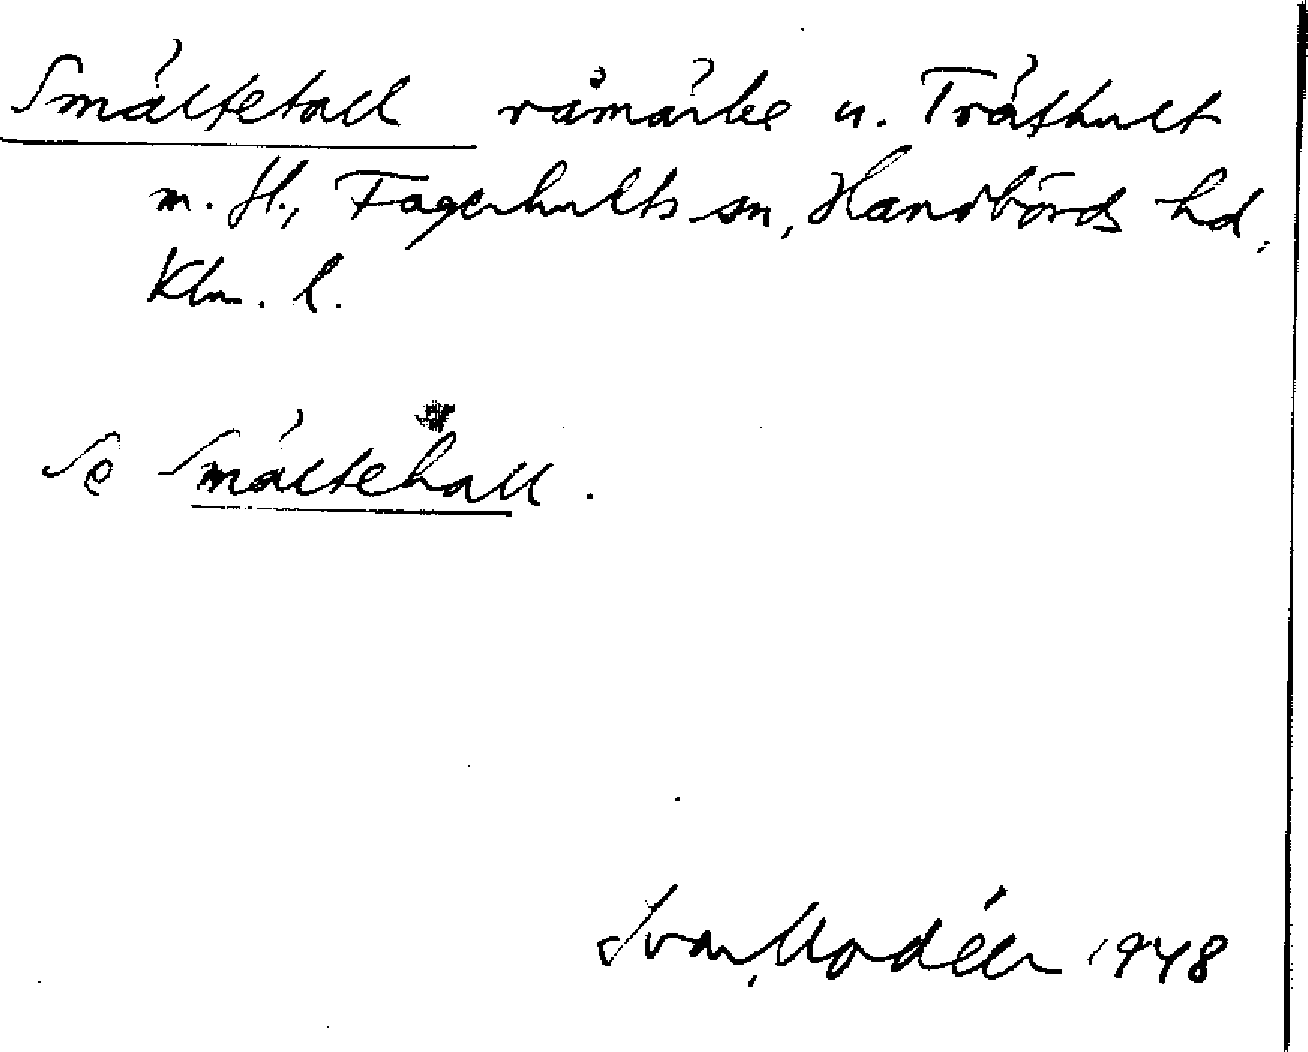 Smältetall råmärke u. Träthult
m. fl., Fagerhults sn, Handbörds hd,
Klm. l.
Se Smältehall.
Ivar Modéer 1948